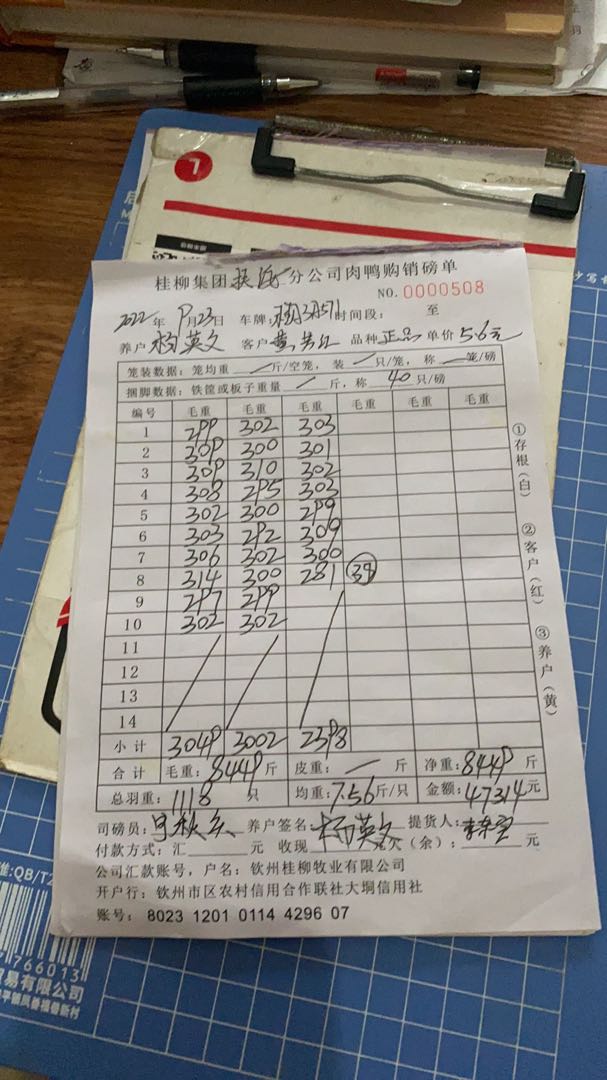 桂柳集团 分公司肉鸭购销磅单
NO.0000508
2022年9月23日 车牌: 时间段: 至
养户 杨英文 客户 品种 正品 单价 5.6元
笼装数据:笼均重 / 斤/空笼,装 / 只/笼,称 / 笼/磅
捆脚数据:铁筐或板子重量 / 斤,称 40 只/磅
编号 毛重 毛重 毛重 毛重 毛重 毛重
1 299 302 303
2 309 300 301
3 309 310 302
4 308 295 303
5 302 300 299
6 303 292 309
7 306 302 300
8 314 300 281
9 297 299
10 302 302
11
12
13
14
小计 3049 3002 2398
合计 毛重:8449斤 皮重: / 斤 净重:8449斤
总羽重:1118只 均重:7.56斤/只 金额:47314元
司磅员: 养户签名:杨英文 提货人:
付款方式:汇 元 收现 (余): 元
公司汇款账号,户名:钦州桂柳牧业有限公司
开户行:钦州市区农村信用合作联社大垌信用社
账号:8023 1201 0114 4296 07
①存根(白)
②客户(红)
③养户(黄)
:QB/T2
766013
易有限公司